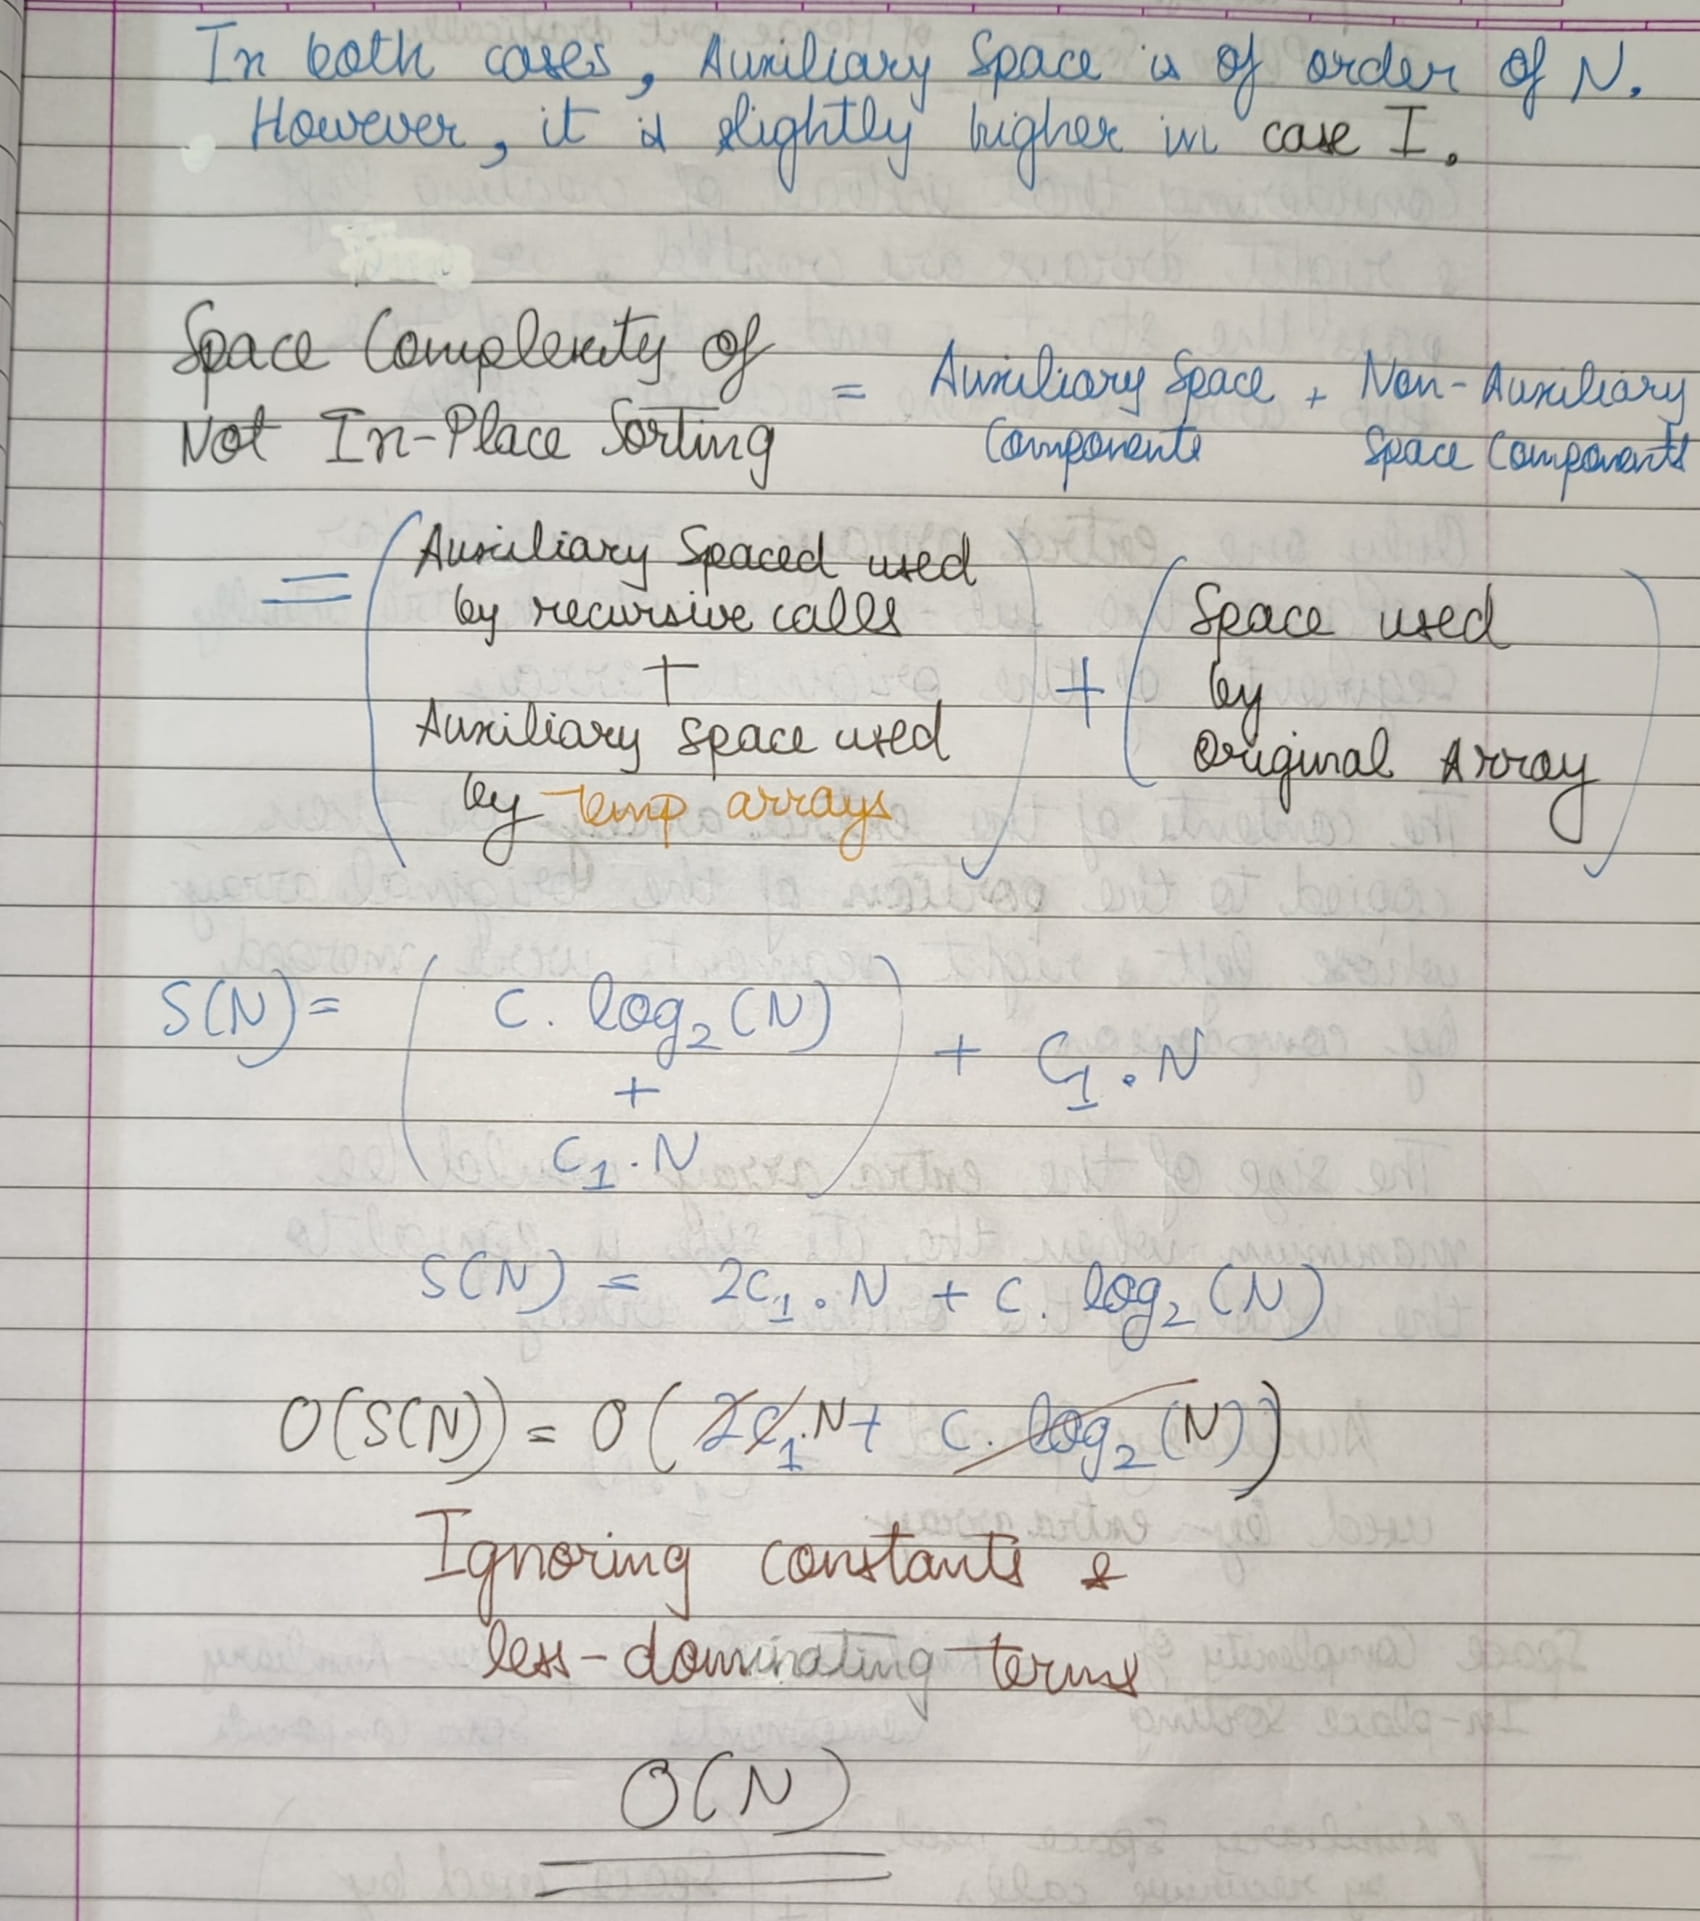 In both cases, Auxiliary Space is of order of N.
However, it is slightly higher in case I.
Space Complexity of
Not In-Place Sorting
= Auxiliary Space + Non-Auxiliary
Components Space Components
= ( Auxiliary Spaced used
by recursive calls
+
Auxiliary space used
by Temp arrays )
+ ( Space used
by
Original Array )
S(N) = ( C. log₂ (N)
+
C₁.N ) + C₁.N
S(N) = 2C₁.N + C. log₂ (N)
O(S(N)) = O( 2C₁.N + C. log₂ (N))
Ignoring constants &
less-dominating terms
O(N)